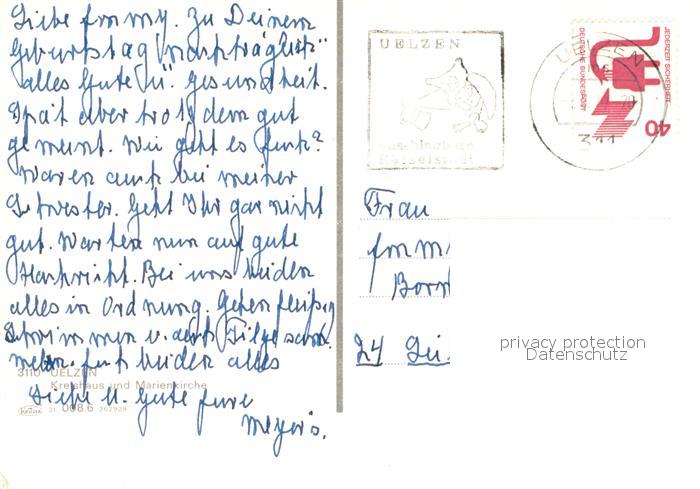 Liebe Emmy. Zu Deinem
Geburtstag "nachträglich"
alles Gute u. Gesundheit.
Spät aber trotzdem gut
gemeint. Wie geht es Euch?
Waren auch bei meiner
Schwester. Geht Ihr gar nicht
gut. Warten nun auf gute
Nachricht. Bei uns beiden
alles in Ordnung. Gehen fleißig
Schwimmen u. auch
Euch beiden alles
Liebe u. Gute Eure
Meyer's.
3110 UELZEN
Kreishaus und Marienkirche
Krüger 31 008.6 262929
UELZEN
311
JEDERZEIT SICHERHEIT
DEUTSCHE BUNDESPOST
40
Frau
24
privacy protection
Datenschutz